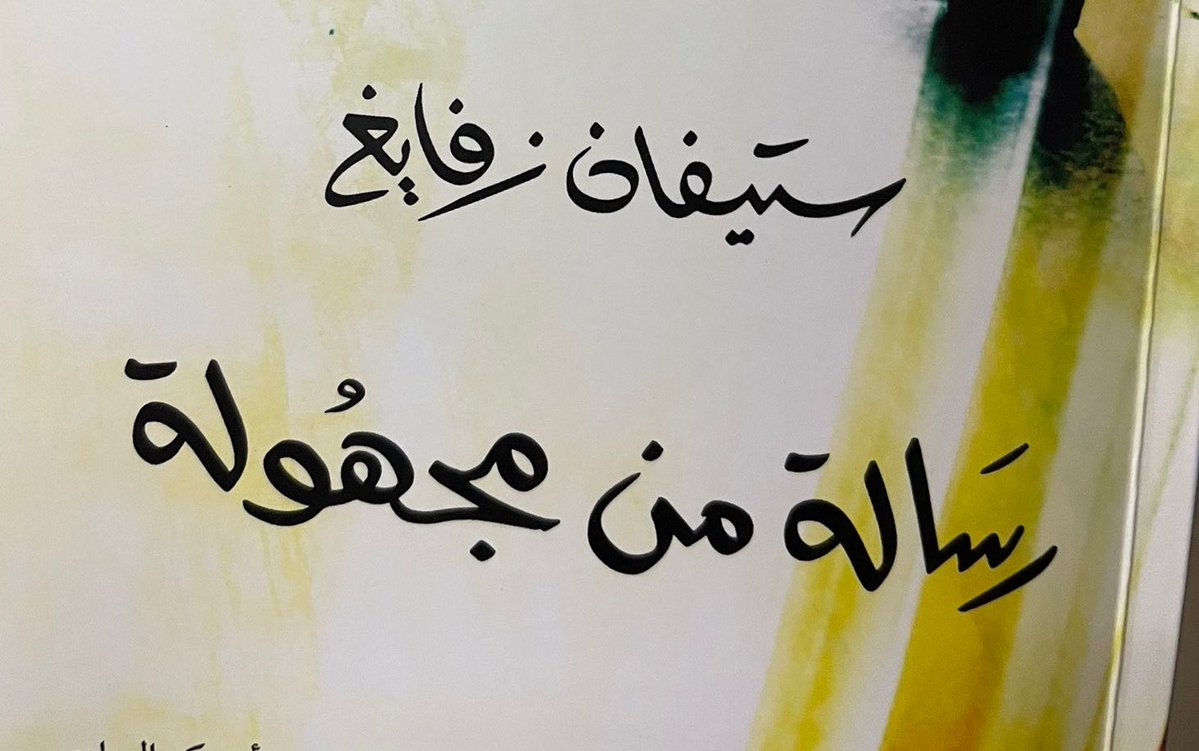 ستيفان زفايغ
رَسالة من مجهُولة